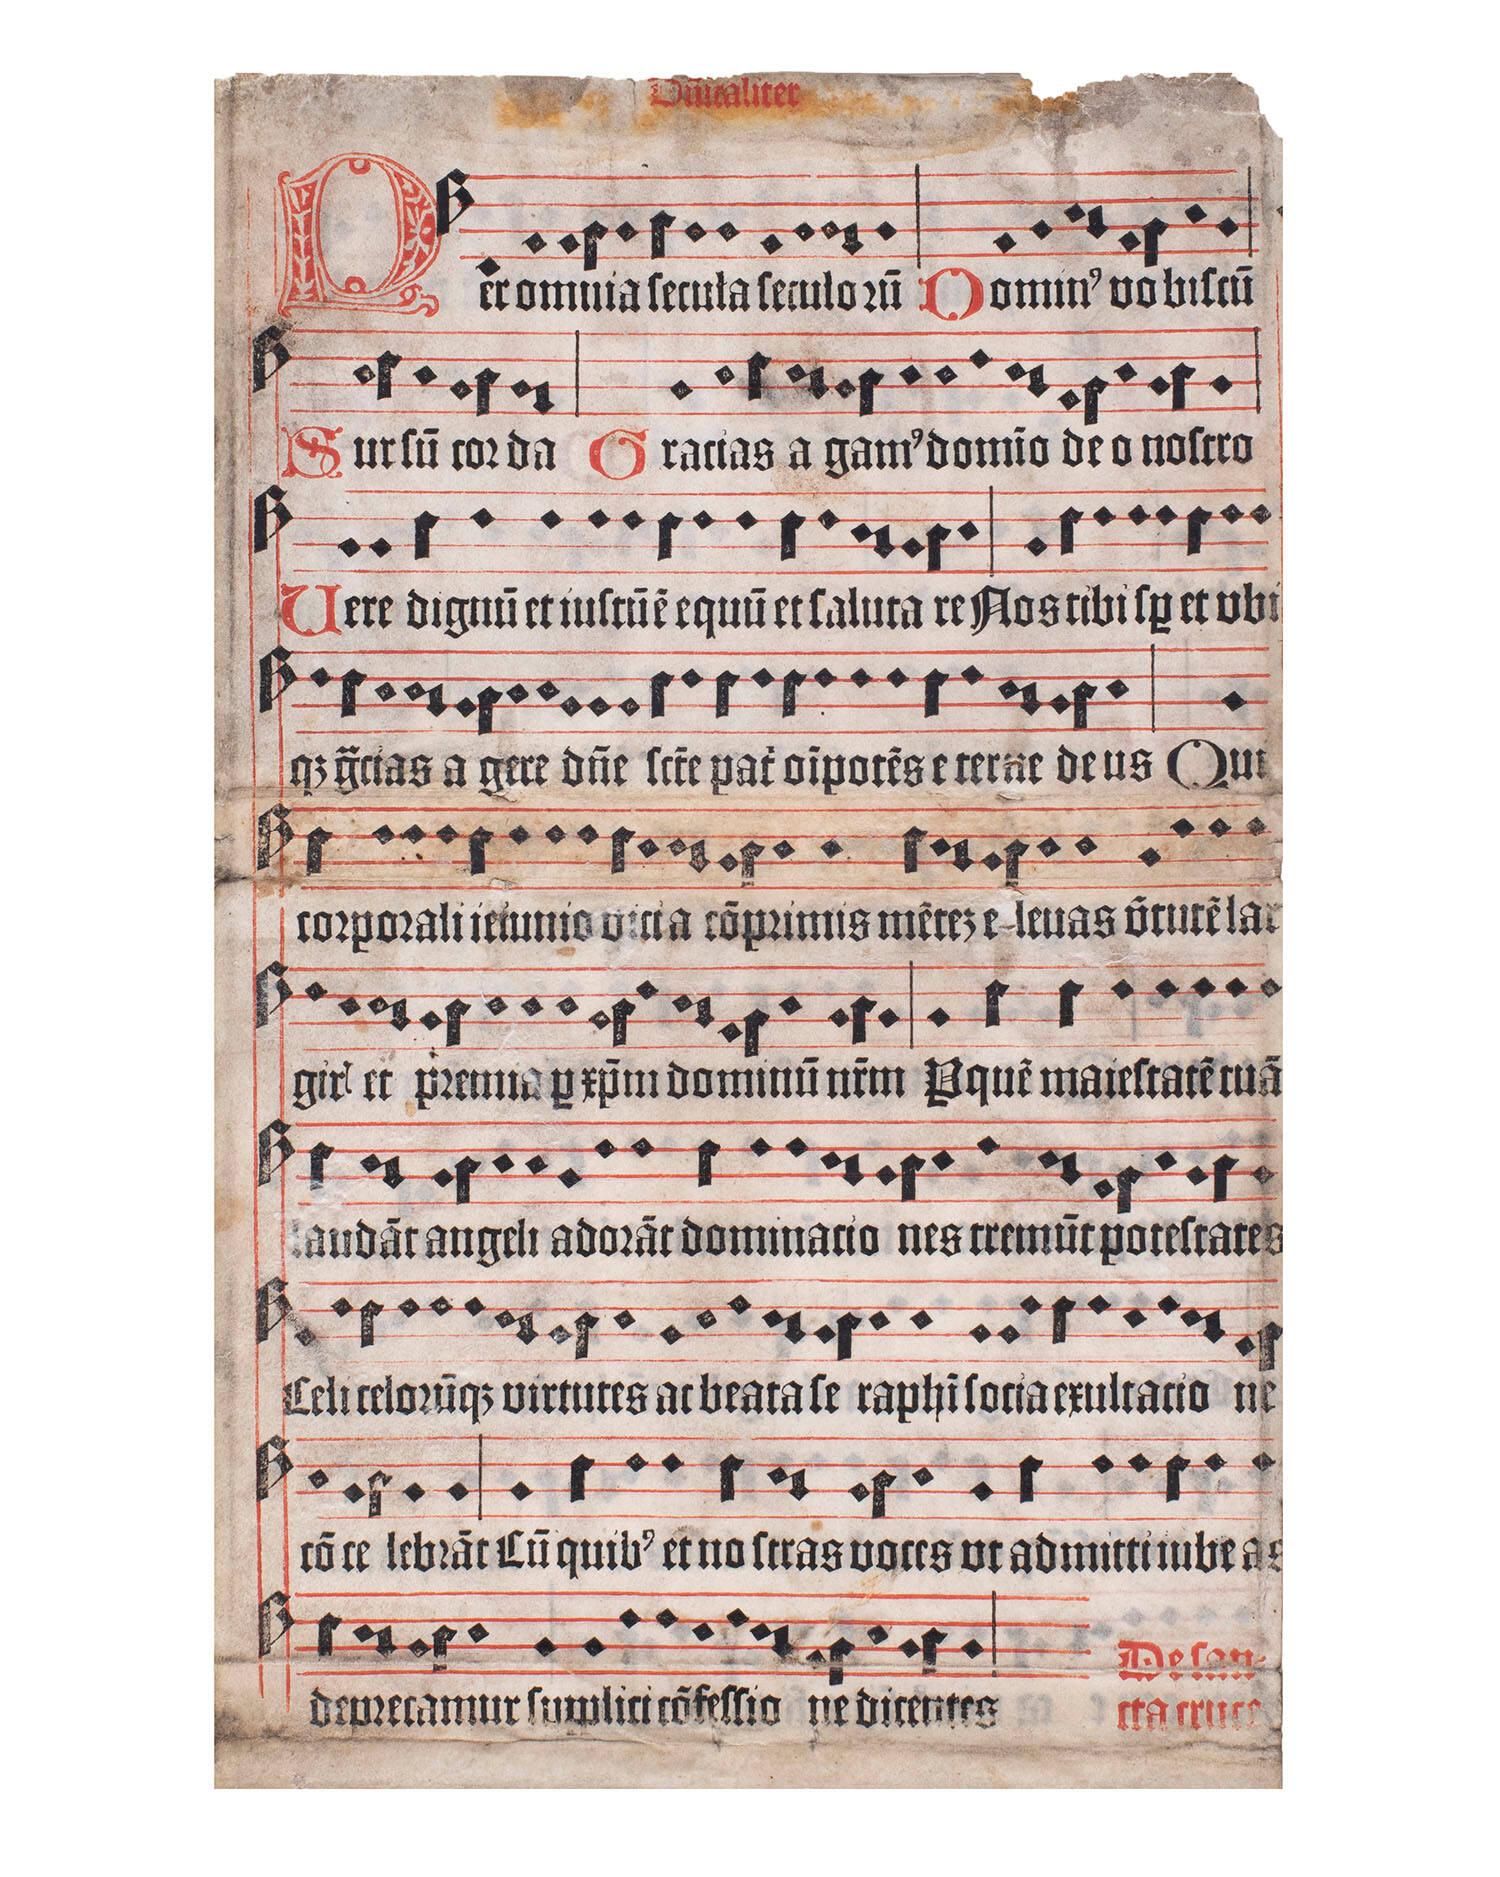 Dñicaliter
Per omnia secula seculorū Dominꝰ vobiscū
Sursū corda Gracias agamꝰ domīo deo nostro
Uere dignū et iustū ē equū et salutare Nos tibi sꝑ et vbi
qꝫ gr̄cias agere dn̄e sctē pat̄ oīpotēs eterne deus Qui
corporali ieiunio vicia cōprimis mēteꝫ eleuas v̄tutē lar
girꝭ et premia ꝑ xp̄m dominū nr̄m Per quē maiestatē tuā
laudāt angeli adorāt dominationes tremūt potestates
Celi celorūqꝫ virtutes ac beata seraphī socia exultatione
cōcelebrāt Cū quibꝰ et nostras voces vt admitti iubeas
deprecamur supplici cōfessione dicentes
De san-
cta cruce